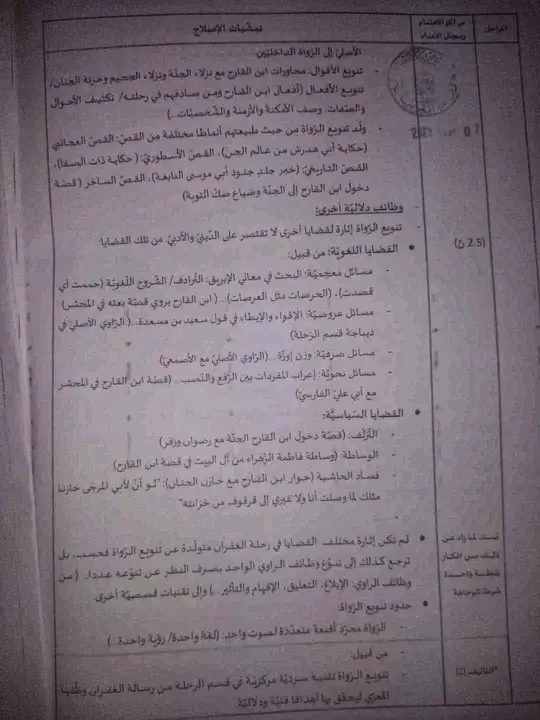 المراجع
مراكز الاهتمام ومجال الأعداد
تمشّيات الإصلاح
الأصليّ إلى الرّواة الداخليّين.
- تنويع الأقوال: محاورات ابن القارح مع نزلاء الجنّة ونزلاء الجحيم وخزنة الجنان/
تنويع الأفعال (أفعال ابن القارح ومن صادفهم في رحلته/ تكثيف الأحوال
والصّفات: وصف الأمكنة والأزمنة والشّخصيّات..)
- ولّد تنويع الرّواة من حيث طبيعتهم أنماطا مختلفة من القصّ: القصّ العجائبي
(حكاية أبي هدرش من عالم الجنّ)، القصّ الأسطوريّ: (حكاية ذات الصّفا)،
القصّ التّاريخيّ: (خبر جلد جنود أبي موسى النابغة)، القصّ الساخر (قصّة
دخول ابن القارح إلى الجنّة وضياع صكّ التوبة)
- وظائف دلاليّة أخرى:
(2.5 ن)
- تنويع الرّواة إثارة لقضايا أخرى لا تقتصر على الدّينيّ والأدبيّ، من تلك القضايا:
• القضايا اللغويّة: من قبيل:
- مسائل معجميّة: البحث في معاني الإبريق: التّرادف/ الشّروح اللّغويّة (حممت أي
قصدت)، (الحرصات مثل العرصات)..( ابن القارح يروي قصّة بعثه في المحشر)
- مسائل عروضيّة: الإقواء والإيطاء في قول سعيد بن مسعدة..( الرّاوي الأصليّ في
ديباجة قسم الرّحلة)
- مسائل صرفيّة: وزن إوزّة.. (الرّاوي الأصليّ مع الأصمعيّ)
- مسائل نحويّة: إعراب المفردات بين الرّفع والنّصب.. (قصّة ابن القارح في المحشر
مع أبي عليّ الفارسيّ)
• القضايا السّياسيّة:
- التّزلّف: (قصّة دخول ابن القارح الجنّة مع رضوان وزفر)
- الوساطة: (وساطة فاطمة الزّهراء من آل البيت في قصة ابن القارح)
- فساد الحاشية (حوار ابن القارح مع خازن الجنان): "لو أنّ لأبي المرجّى خازنا
مثلك لما وصلت أنا ولا غيري إلى قرقوف من خزانته"
- ...
• لم تكن إثارة مختلف القضايا في رحلة الغفران متولّدة عن تنويع الرّواة فحسب، بل
ترجع كذلك إلى تنوّع وظائف الراوي الواحد بصرف النّظر عن تنوّعه عددا.. (من
وظائف الراوي: الإبلاغ، التعليق، الإفهام والتأثير...) وإلى تقنيات قصصيّة أخرى.
• حدود تنويع الرّواة:
- الرّواة مجرّد أقنعة متعدّدة لصوت واحد: (لغة واحدة/ رؤية واحدة..)
من قبيل:
- تنويع الرّواة تقنية سرديّة مركزيّة في قسم الرحلة من رسالة الغفران وظّفها
المعرّي ليحقّق بها أهدافا فنيّة ودلاليّة.